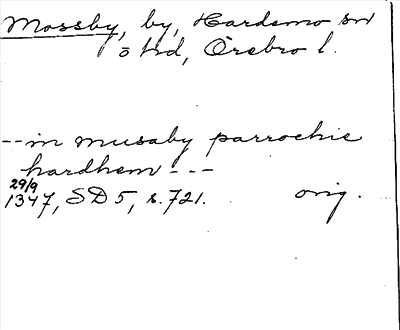 Mossby, by, Hardemo sn
o hd, Örebro l.
-- in musaby parrochie
hardhem - - -
29/9
1347, SD 5, s. 721. orig.